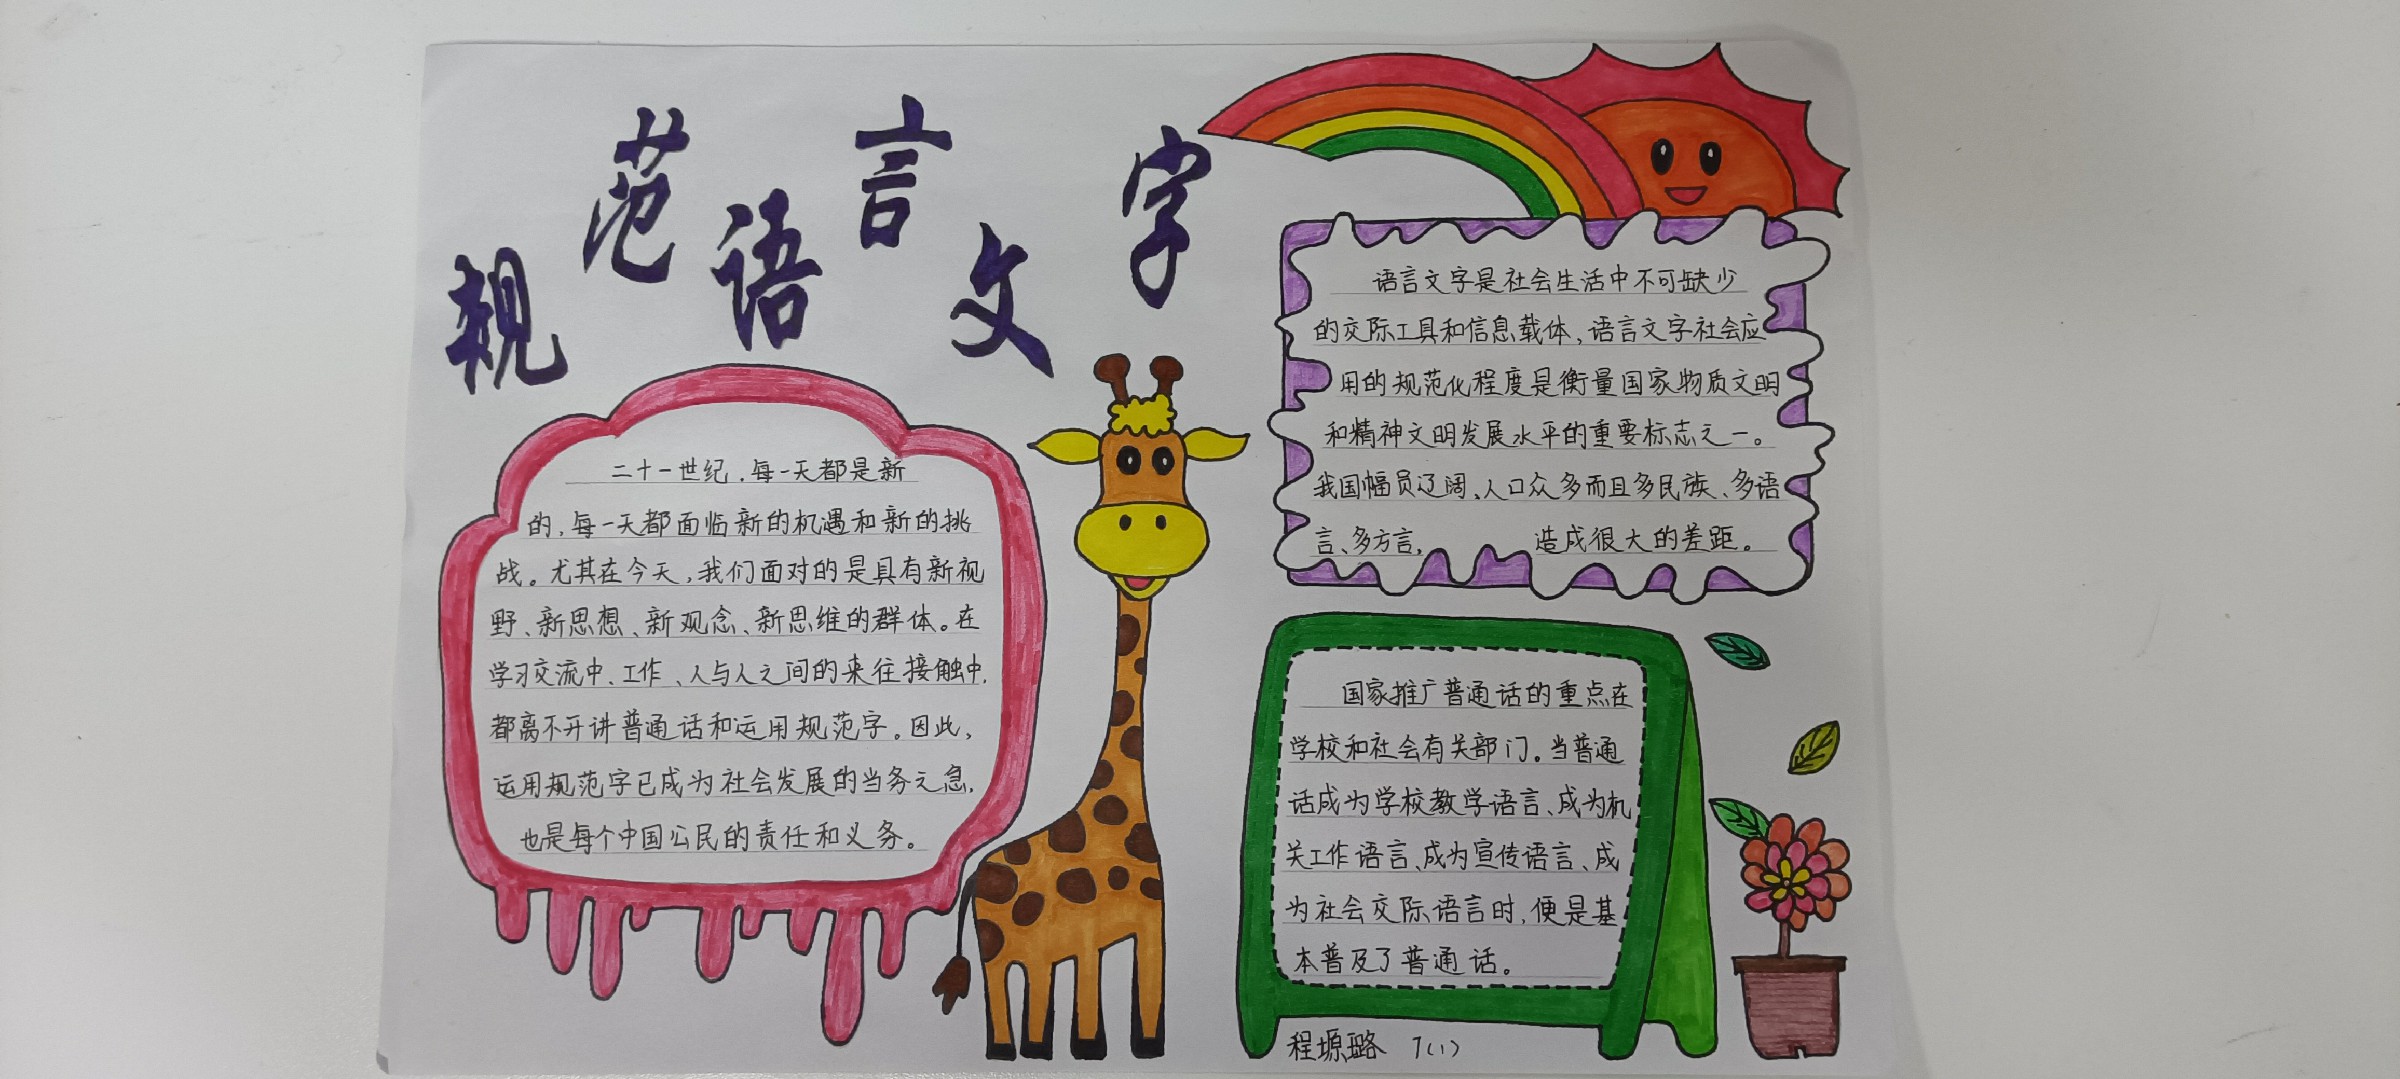 规范语言文字
二十一世纪,每一天都是新
的,每一天都面临新的机遇和新的挑
战。尤其在今天,我们面对的是具有新视
野、新思想、新观念、新思维的群体。在
学习交流中、工作、人与人之间的来往接触中,
都离不开讲普通话和运用规范字。因此,
运用规范字已成为社会发展的当务之急,
也是每个中国公民的责任和义务。
语言文字是社会生活中不可缺少
的交际工具和信息载体,语言文字社会应
用的规范化程度是衡量国家物质文明
和精神文明发展水平的重要标志之一。
我国幅员辽阔、人口众多而且多民族、多语
言、多方言, 造成很大的差距。
国家推广普通话的重点在
学校和社会有关部门。当普通
话成为学校教学语言、成为机
关工作语言、成为宣传语言、成
为社会交际语言时,便是基
本普及了普通话。
程塬璐 7(1)